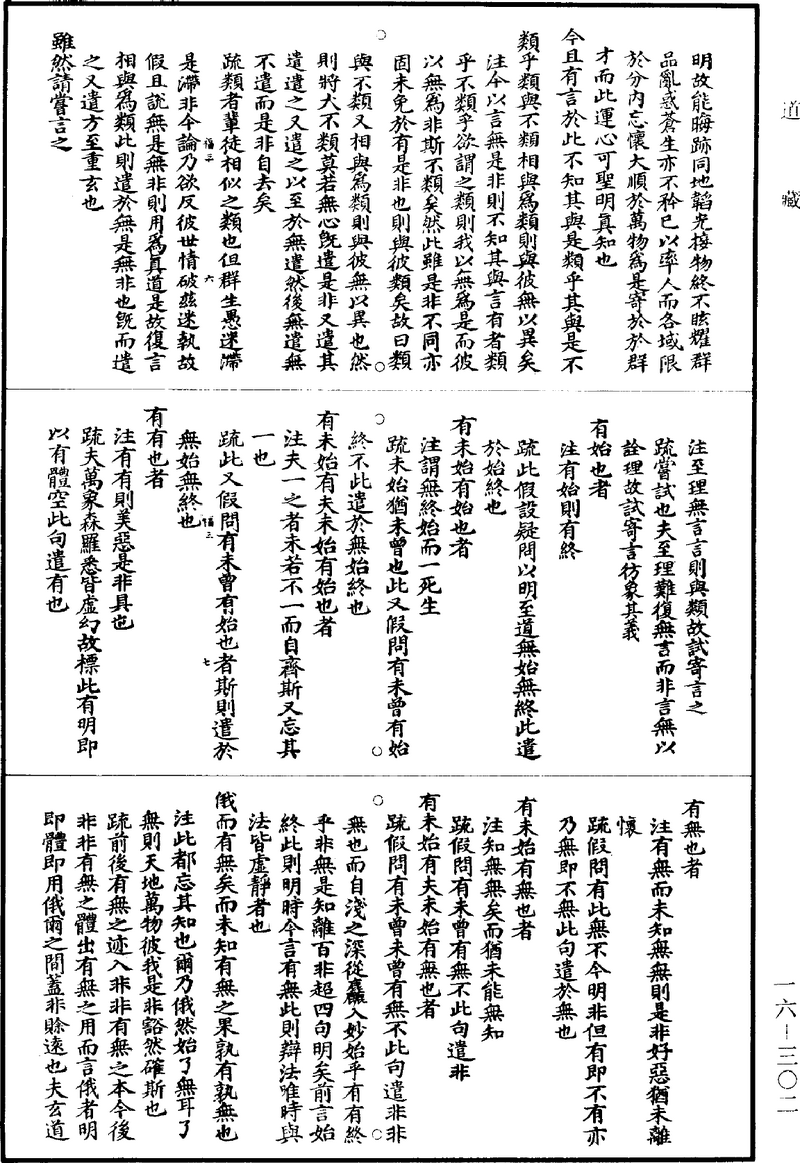 道藏
明故能晦跡同地韜光接物終不眩耀群
品亂惑蒼生亦不矜已以率人而各域限
於分内忘懷大順於萬物爲是寄於於群
才而此運心可聖明真知也
今且有言於此不知其與是類乎其與是不
類乎類與不類相與爲類則與彼無以異矣
注今以言無是非則不知其與言有者類
乎不類乎欲謂之類則我以無爲是而彼
以無爲非斯不類矣然此雖是非不同亦
固未免於有是非也則與彼類矣故曰類
與不類又相與爲類則與彼無以異也然
則將大不類莫若無心既遣是非又遣其
遣遣之又遣之以至於無遣然後無遣無
不遣而是非自去矣
疏類者輩徒相似之類也但群生愚迷滯
是滯非今論乃欲反彼世情破兹迷執故
假且説無是無非則用爲真道是故復言
相與爲類此則遣於無是無非也既而遣
之又遣方至重玄也
雖然請嘗言之
注至理無言言則與類故試寄言之
疏嘗試也夫至理難復無言而非言無以
詮理故試寄言彷象其義
有始也者
注有始則有終
疏此假設疑問以明至道無始無終此遣
於始終也
有未始有始也者
注謂無終始而一死生
疏未始猶未曾也此又假問有未曾有始
終不此遣於無始終也
有未始有夫未始有始也者
注夫一之者未若不一而自齊斯又忘其
一也
疏此又假問有未曾有始也者斯則遣於
無始無終也
有有也者
注有有則美惡是非具也
疏夫萬象森羅悉皆虛幻故標此有明即
以有體空此句遣有也
有無也者
注有無而未知無無則是非好惡猶未離
懷
疏假問有此無不今明非但有即不有亦
乃無即不無此句遣於無也
有未始有無也者
注知無無矣而猶未能無知
疏假問有未曾有無不此句遣非
有未始有夫未始有無也者
疏假問有未曾未曾有無不此句遣非非
無也而自淺之深從麤入妙始乎有有終
乎非無是知離百非超四句明矣前言始
終此則明時今言有無此則辯法唯時與
法皆虛靜者也
俄而有無矣而未知有無之果孰有孰無也
注此都忘其知也爾乃俄然始了無耳了
無則天地萬物彼我是非豁然確斯也
疏前後有無之迹入非非有無之本今後
非非有無之體出有無之用而言俄者明
即體即用俄爾之間蓋非賒遠也夫玄道
一六-三〇二